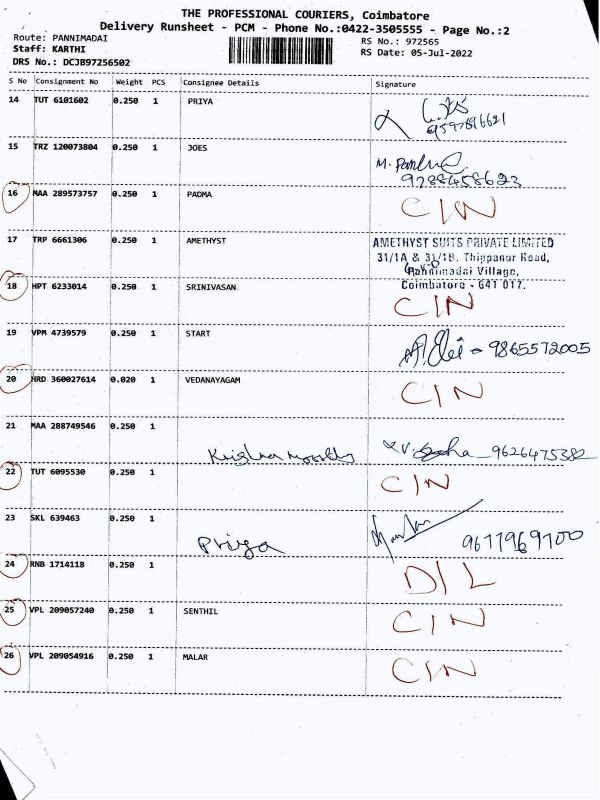 THE PROFESSIONAL COURIERS, Coimbatore
Delivery Runsheet - PCM - Phone No.:0422-3505555 - Page No.:2
Route: PANNIMADAI
Staff: KARTHI
DRS No.: DCJB97256502
RS No.: 972565
RS Date: 05-Jul-2022
S No Consignment No Weight PCS Consignee Details Signature
14 TUT 6101602 0.250 1 PRIYA
9597816621
15 TRZ 120073804 0.250 1 JOES
M.
9788458623
16 MAA 289573757 0.250 1 PADMA CIN
17 TRP 6661306 0.250 1 AMETHYST AMETHYST SUITS PRIVATE LIMITED
31/1A & 31/1B, Thippanur Road,
Pannimadai Village,
Coimbatore - 641 017.
18 HPT 6233014 0.250 1 SRINIVASAN CIN
19 VPM 4739579 0.250 1 START - 9865572005
20 HRD 360027614 0.020 1 VEDANAYAGAM CIN
21 MAA 288749546 0.250 1
Krishna Moorthy 9626475382
22 TUT 6095530 0.250 1 CIN
23 SKL 639463 0.250 1
Priya 9677969700
24 RNB 1714118 0.250 1 D/L
25 VPL 209057240 0.250 1 SENTHIL CIN
26 VPL 209054916 0.250 1 MALAR CIN